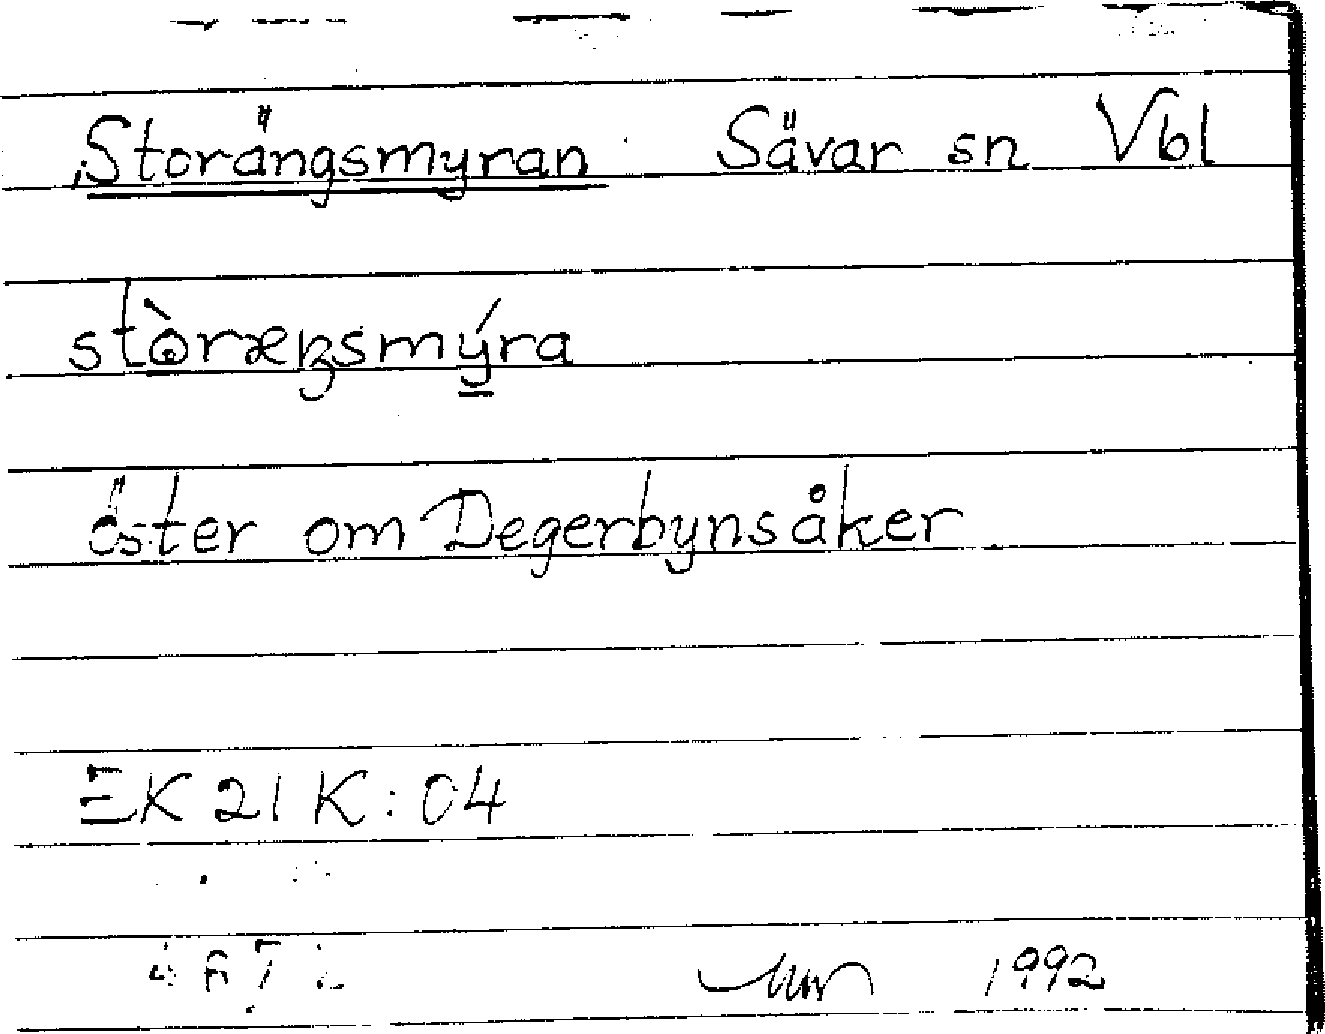 Storängsmyran Sävar sn Vbl
stòræŋsmýra
öster om Degerbynsåker
EK 21 K : 04
1992